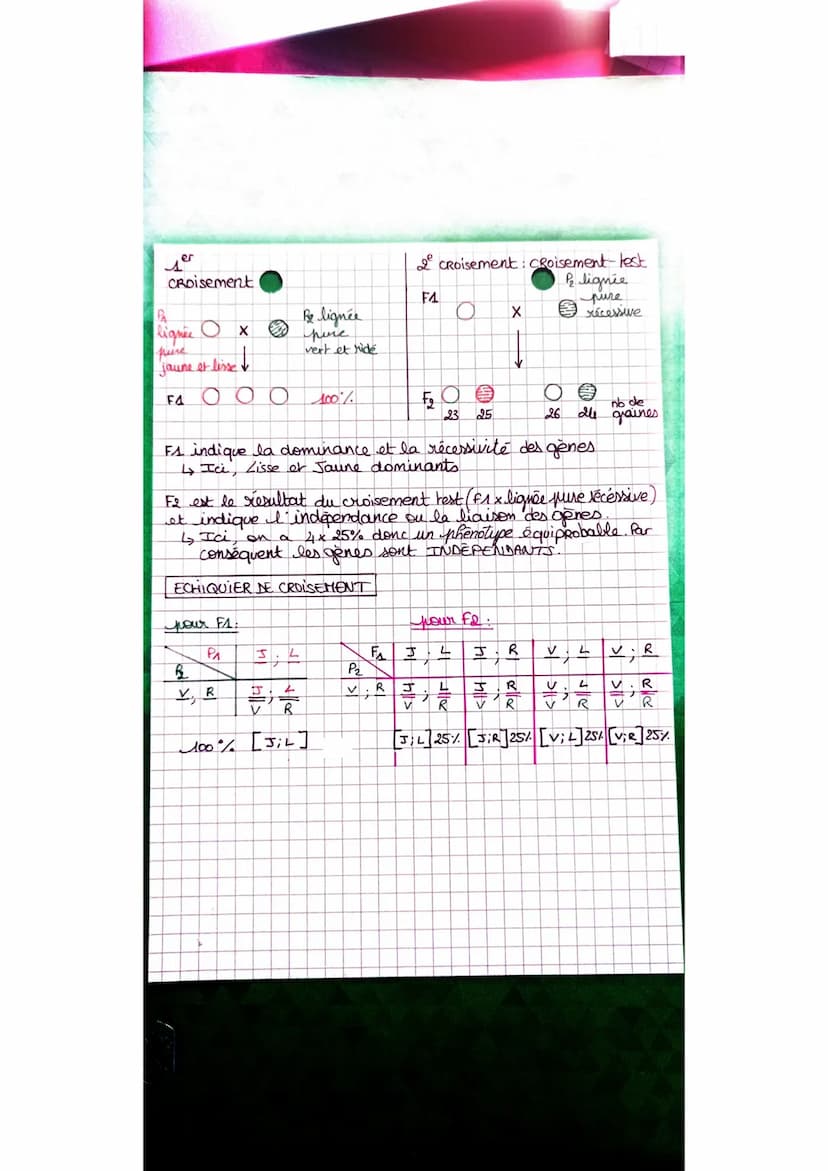 1er
CROISEMENT
P1
lignée
pure
jaune et lisse
x
P2 lignée
pure
vert et ridé
F1
100%
2e CROISEMENT : CROISEMENT-test
F1
x
P2 lignée
pure
récessive
F2
23 25 26 24
nb de
graines
F1 indique la dominance et la récessivité des gènes
↳ Ici, Lisse et Jaune dominants
F2 est le résultat du croisement test (F1 x lignée pure récéssive)
et indique l'indépendance ou la liaison des gènes.
↳ Ici, on a 4 x 25% donc un phénotype équiprobable. Par
conséquent les gènes sont INDÉPENDANTS.
ECHIQUIER DE CROISEMENT
pour F1 :
P1 J ; L
P2
V ; R J ; L
V R
100% [J;L]
pour F2 :
F1 J ; L J ; R V ; L V ; R
P2
V ; R J ; L J ; R V ; L V ; R
V R V R V R V R
[J;L] 25% [J;R] 25% [V;L] 25% [V;R] 25%